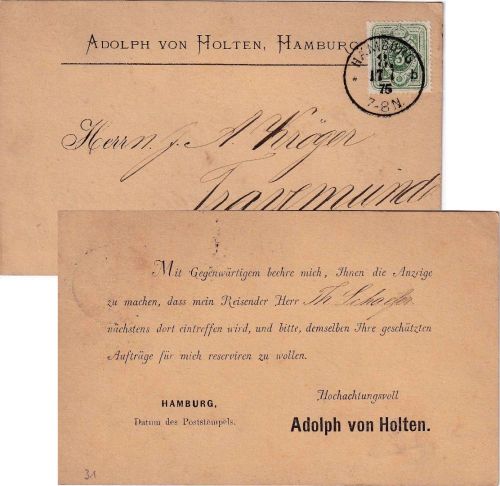 ADOLPH VON HOLTEN, HAMBURG
HAMBURG
17 7
75
7-8 N.
Herrn J. A. Kröger
Travemünde
Mit Gegenwärtigem beehre mich, Ihnen die Anzeige
zu machen, dass mein Reisender Herr Th Schäffer
nächstens dort eintreffen wird, und bitte, demselben Ihre geschätzten
Aufträge für mich reserviren zu wollen.
Hochachtungsvoll
HAMBURG,
Datum des Poststempels.
Adolph von Holten.
31